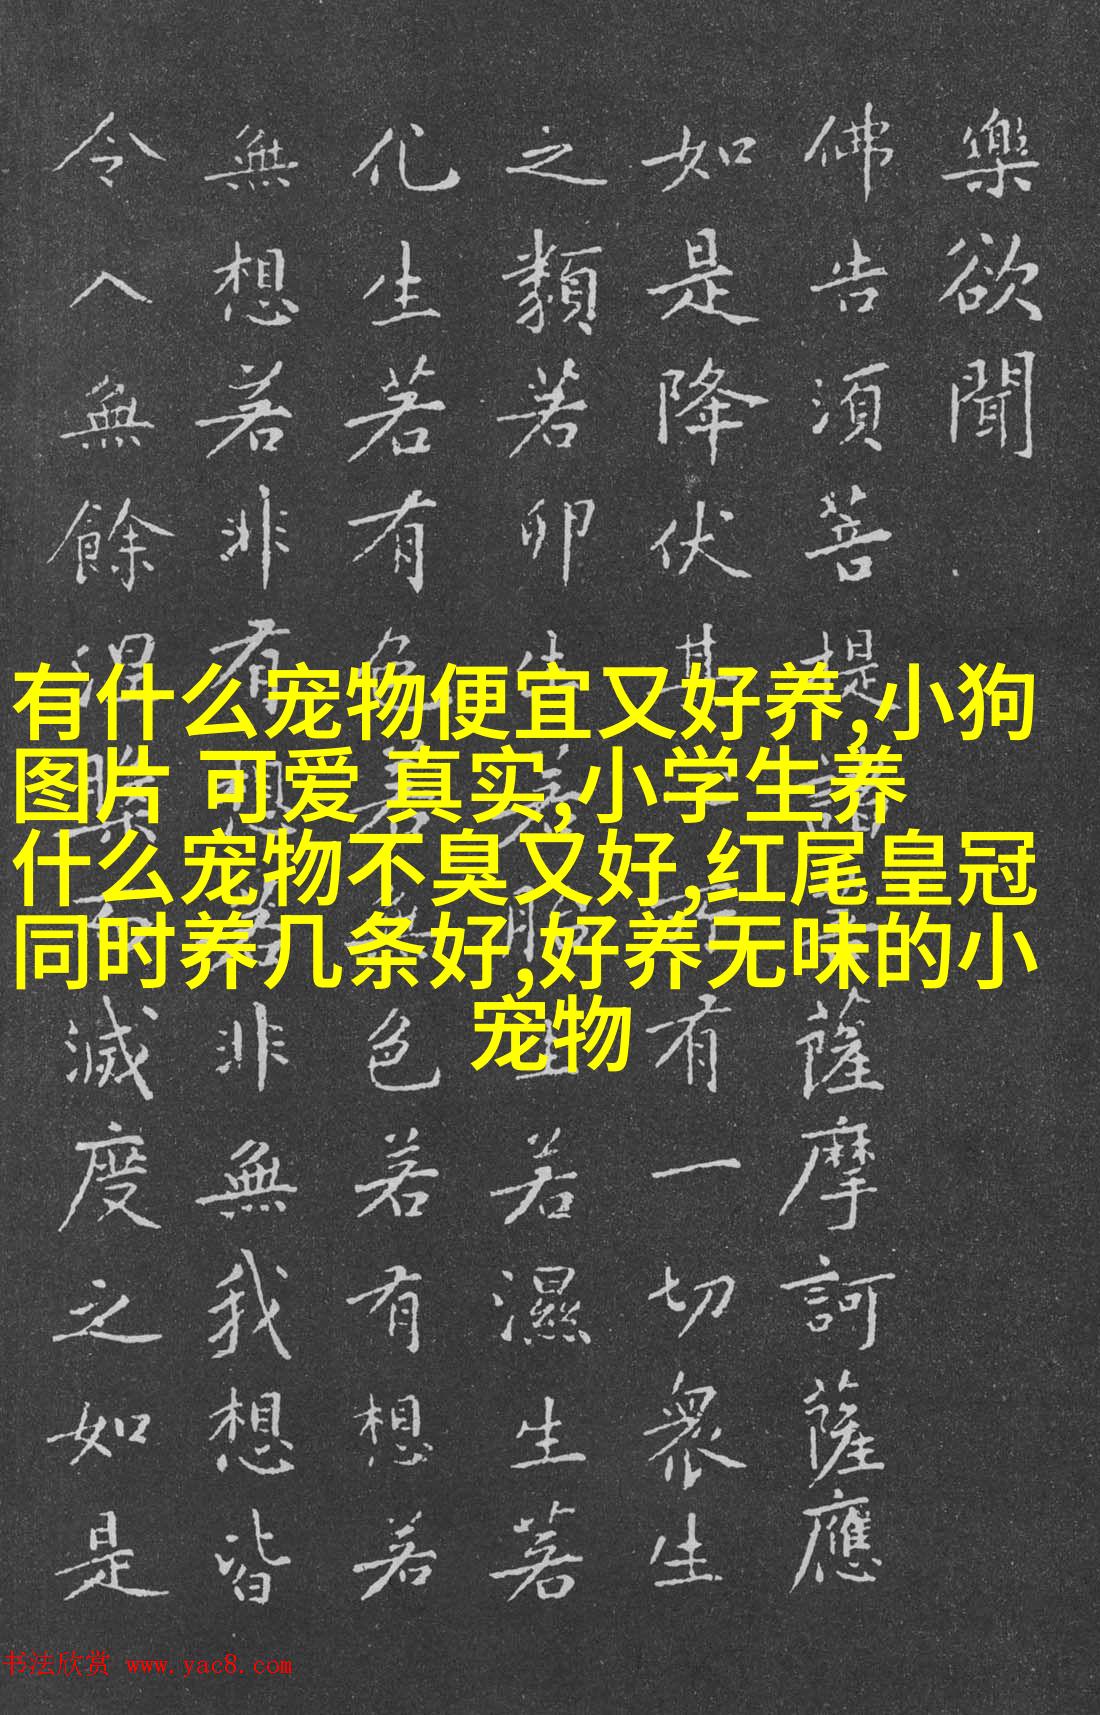 樂欲聞
佛告須菩提諸薩摩訶薩應
如是降伏其所有一切衆生
之類若卵生若胎生若濕生若
化生若有色若無色若有想若
無想若非有想若非無我想皆
令入無餘涅槃滅度之如是
有什么宠物便宜又好养,小狗
图片 可爱 真实,小学生养
什么宠物不臭又好,红尾皇冠
同时养几条好,好养无味的小
宠物
书法欣赏 www.yac8.com